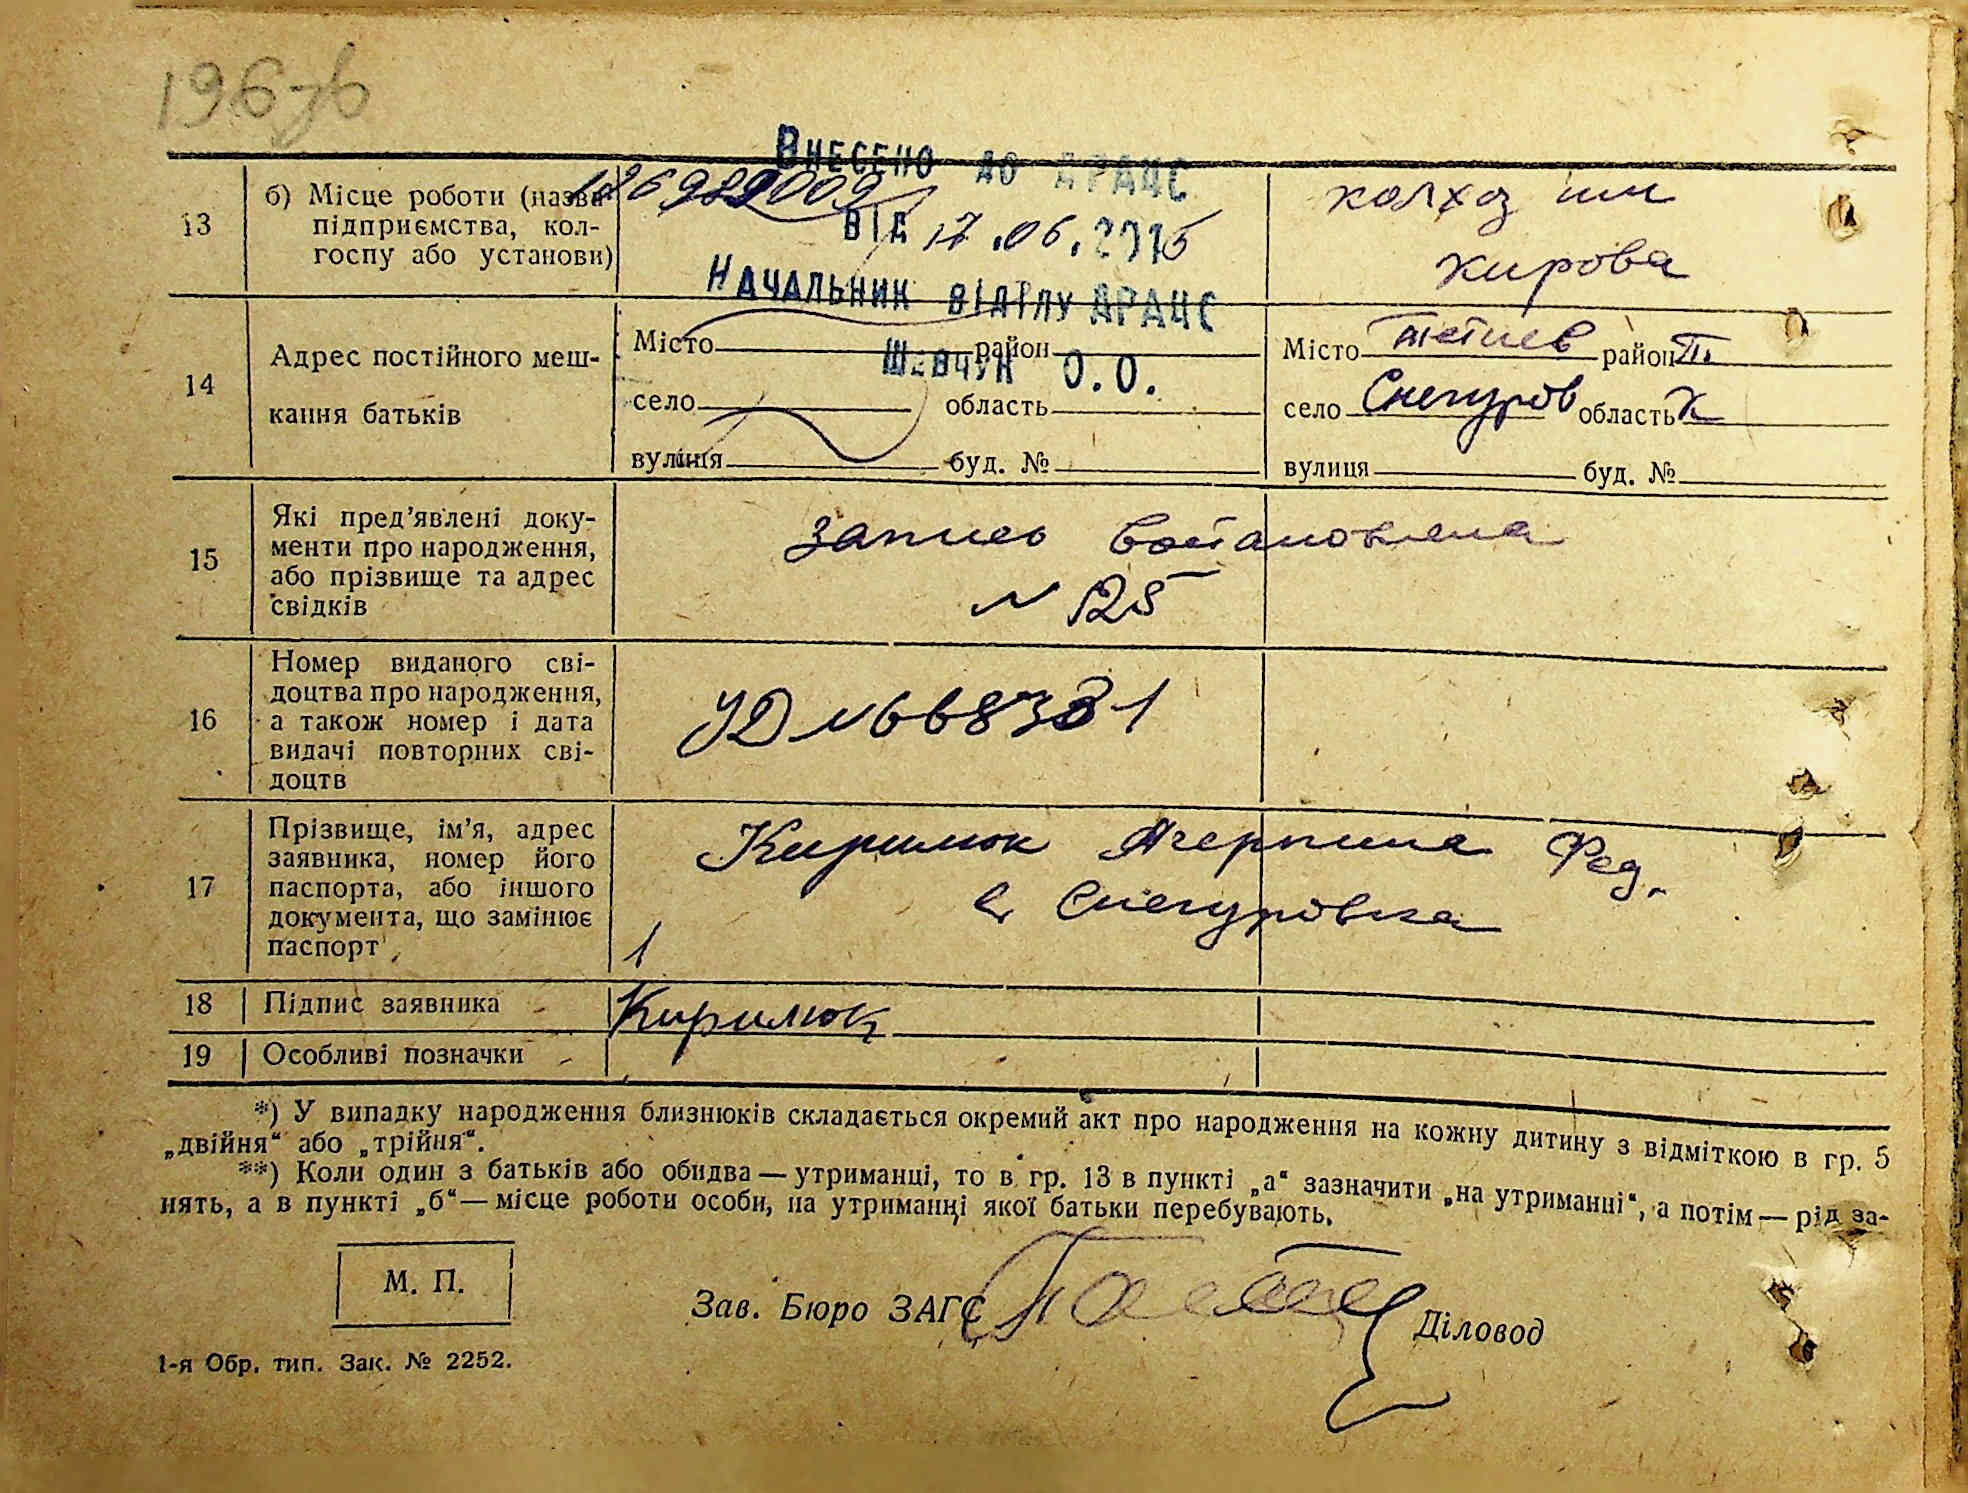 196зв
Внесено до ДРАЦС
13
б) Місце роботи (назва
підприємства, кол-
госпу або установи)
від 17.06.2015
Начальник відділу ДРАЦС
Шевчук О.О.
колхоз им
Кирова
14
Адрес постійного меш-
кання батьків
Місто район
село область
вулиця буд. №
Місто Тетиев район Т.
село Снегуров область К
вулиця буд. №
15
Які пред’явлені доку-
менти про народження,
або прізвище та адрес
свідків
запись востановлена
N 125
16
Номер виданого сві-
доцтва про народження,
а також номер і дата
видачі повторних сві-
доцтв
УД N 668331
17
Прізвище, ім’я, адрес
заявника, номер його
паспорта, або іншого
документа, що замінює
паспорт
Кирилюк Агерпина Фед.
с. Снегуровка
18
Підпис заявника
Кирилюк
19
Особливі позначки
*) У випадку народження близнюків складається окремий акт про народження на кожну дитину з відміткою в гр. 5
„двійня“ або „трійня“.
**) Коли один з батьків або обидва — утриманці, то в гр. 13 в пункті „а“ зазначити „на утриманні“, а потім — рід за-
нять, а в пункті „б“ — місце роботи особи, на утриманці якої батьки перебувають.
М. П.
Зав. Бюро ЗАГС
Діловод
1-я Обр. тип. Зак. № 2252.